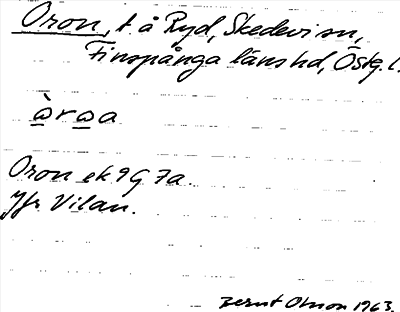 Oron, t. å Ryd, Skedevi sn,
Finspånga läns hd, Östg. l.
òrωa
Oron ek 9G 7a.
Jfr Vilan.
Bernt Olsson 1963.